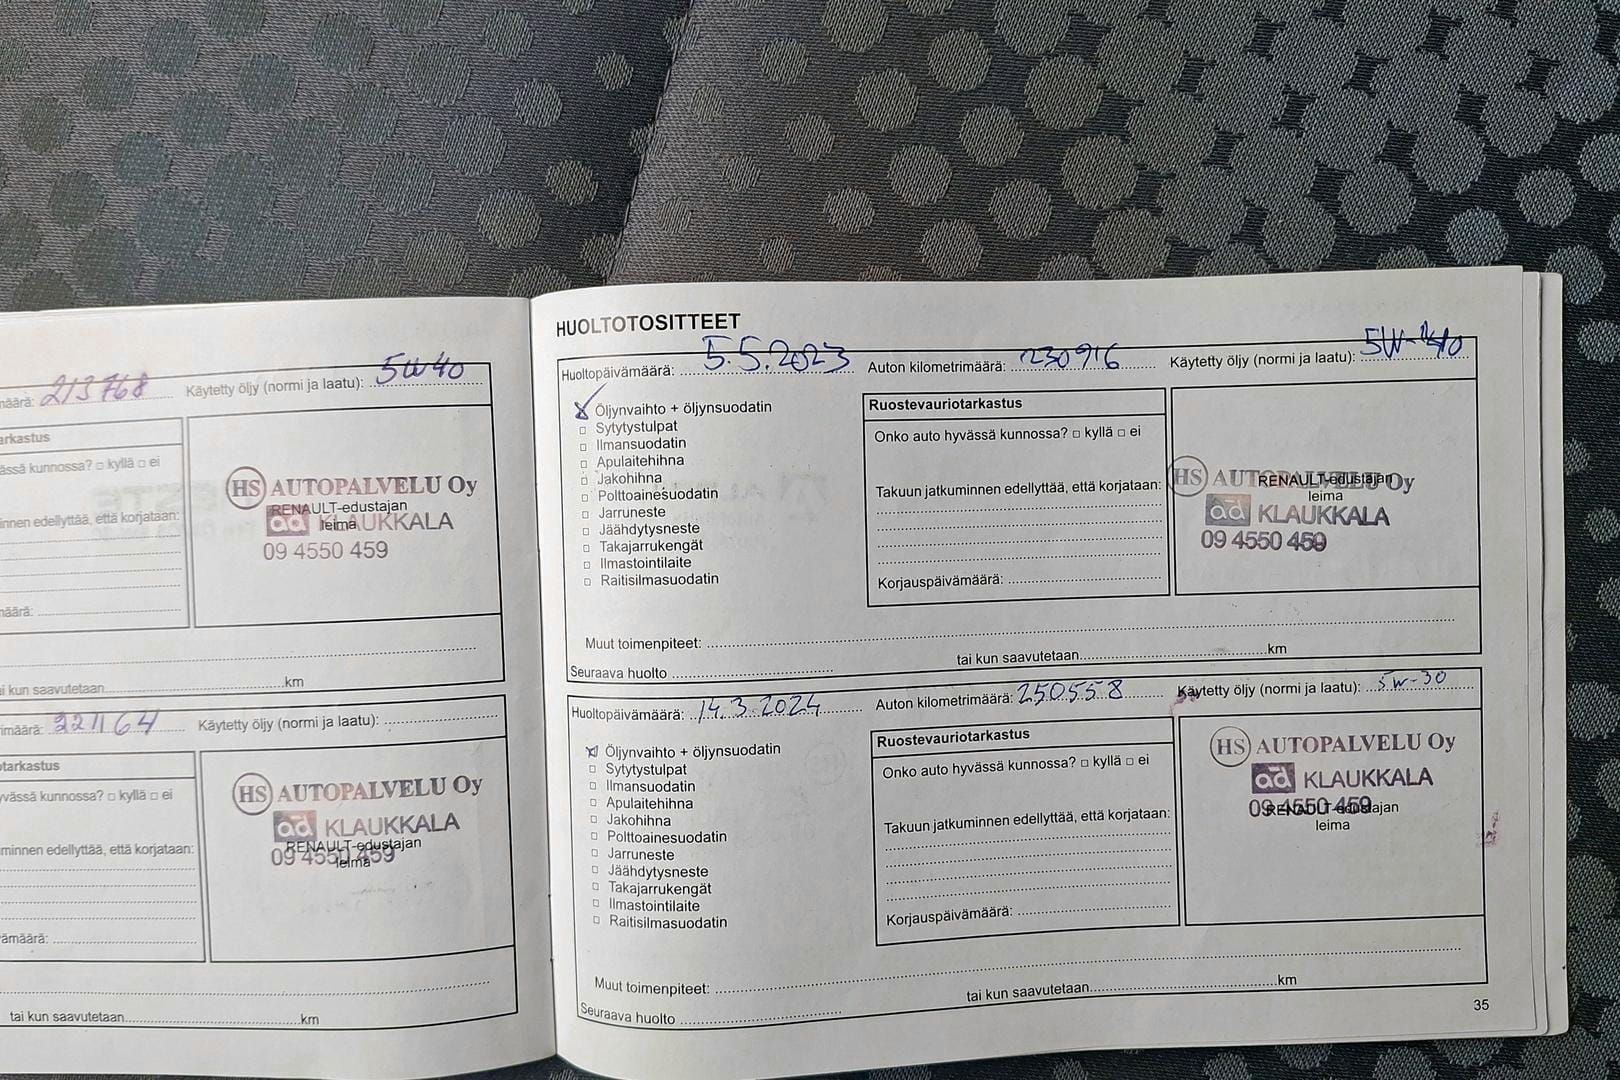 määrä: 213768 Käytetty öljy (normi ja laatu): 5W40
arkastus
ässä kunnossa? □ kyllä □ ei
innen edellyttää, että korjataan:
määrä:
HS AUTOPALVELU Oy
RENAULT-edustajan
leima
ad KLAUKKALA
09 4550 459
ai kun saavutetaan km
rimäärä: 221164 Käytetty öljy (normi ja laatu):
otarkastus
yvässä kunnossa? □ kyllä □ ei
minnen edellyttää, että korjataan:
vämäärä:
HS AUTOPALVELU Oy
ad KLAUKKALA
RENAULT-edustajan
09 4550 459
leima
tai kun saavutetaan km
HUOLTOTOSITTEET
Huoltopäivämäärä: 5.5.2023 Auton kilometrimäärä: 230916 Käytetty öljy (normi ja laatu): 5W-40
Öljynvaihto + öljynsuodatin
□ Sytytystulpat
□ Ilmansuodatin
□ Apulaitehihna
□ Jakohihna
□ Polttoainesuodatin
□ Jarruneste
□ Jäähdytysneste
□ Takajarrukengät
□ Ilmastointilaite
□ Raitisilmasuodatin
Ruostevauriotarkastus
Onko auto hyvässä kunnossa? □ kyllä □ ei
Takuun jatkuminnen edellyttää, että korjataan:
Korjauspäivämäärä:
HS AUTOPALVELU Oy
RENAULT-edustajan
leima
ad KLAUKKALA
09 4550 459
Muut toimenpiteet:
Seuraava huolto tai kun saavutetaan km
Huoltopäivämäärä: 14.3.2024 Auton kilometrimäärä: 250558 Käytetty öljy (normi ja laatu): 5W-30
Öljynvaihto + öljynsuodatin
□ Sytytystulpat
□ Ilmansuodatin
□ Apulaitehihna
□ Jakohihna
□ Polttoainesuodatin
□ Jarruneste
□ Jäähdytysneste
□ Takajarrukengät
□ Ilmastointilaite
□ Raitisilmasuodatin
Ruostevauriotarkastus
Onko auto hyvässä kunnossa? □ kyllä □ ei
Takuun jatkuminnen edellyttää, että korjataan:
Korjauspäivämäärä:
HS AUTOPALVELU Oy
ad KLAUKKALA
09 4550 459
RENAULT-edustajan
leima
Muut toimenpiteet:
Seuraava huolto tai kun saavutetaan km
35